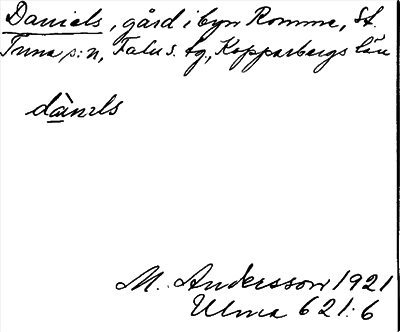 Daniels, gård i byn Romme, St.
Tuna s:n, Falu s. tg., Kopparbergs län
dànəls
M. Andersson 1921
Ulma 621:6